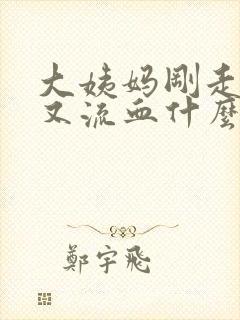 大姨妈刚走
又流血什麼
鄭宇飛